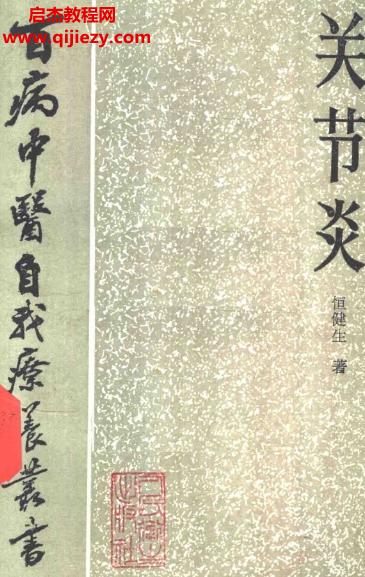 启杰教程网
www.qijiezy.com
百病中醫自我療養叢書
关节炎
恒健生 著
人民衛生出版社